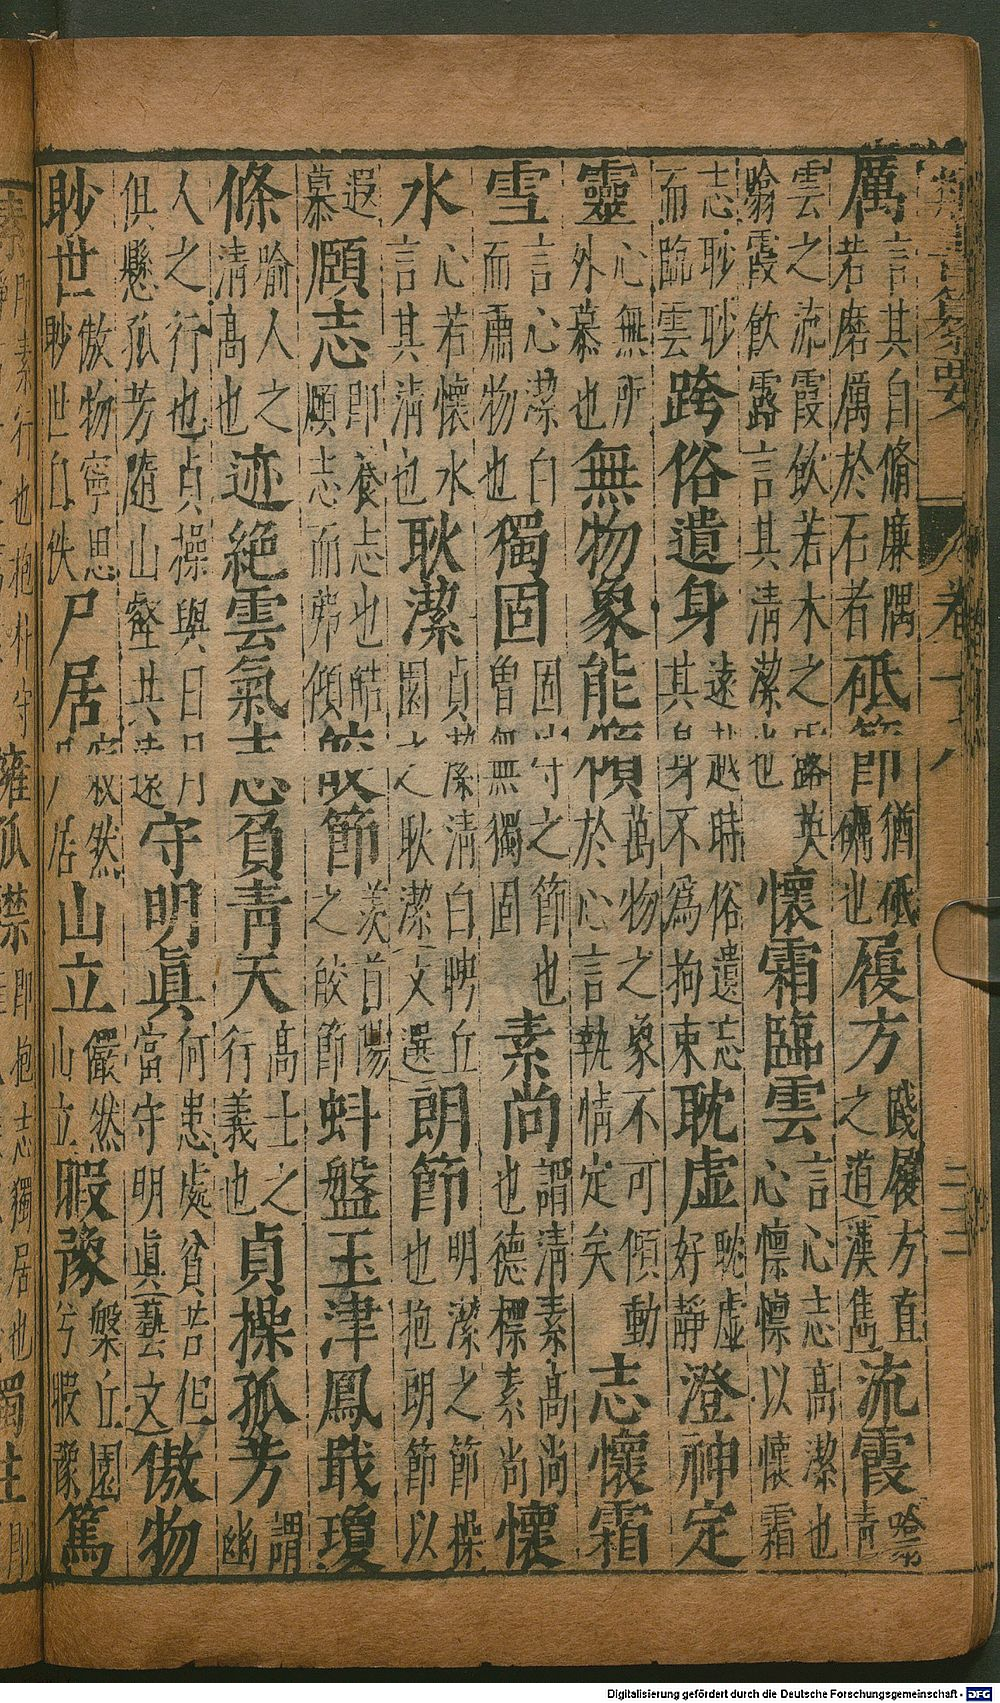 厲言其自脩廉隅若磨厲於石者砥節猶砥礪也履方踐履方直之道漢雋流霞
雲之流霞飲若木之露英翕霞飲露言其清潔也懷霜臨雲言心志高潔也心懍懍以懷霜
志眇眇而臨雲跨俗遺身遠越時俗遺忘其身不為拘束耽虛耽虛好靜澄神定
靈心無所外慕也無物象能傾萬物之象不可傾動於心言執情定矣志懷霜
雪言心潔白而肅物也獨固固守之節也曾無獨固素尚謂清素高尚也德標素尚懷
水心若懷水言其清也耿潔貞潔清白聘丘園之耿潔文選朗節明潔之節操也抱朗節以
遐慕願志即養志也願志而茆傾皎節羨首陽之皎節蚪盤玉津鳳戢瓊
條喻人之清高也迹絕雲氣志負青天高士之行義也貞操孤芳謂幽
人之行也貞操與日月俱懸孤芳隨山壑共遠守明真何患處貧苦但當守明真藝文傲物
眇世傲物寧思眇世自佚尸居寂然尸居山立儼然山立暇豫槃丘園兮暇豫篤
卷一八
二三
Digitalisierung gefördert durch die Deutsche Forschungsgemeinschaft - DFG